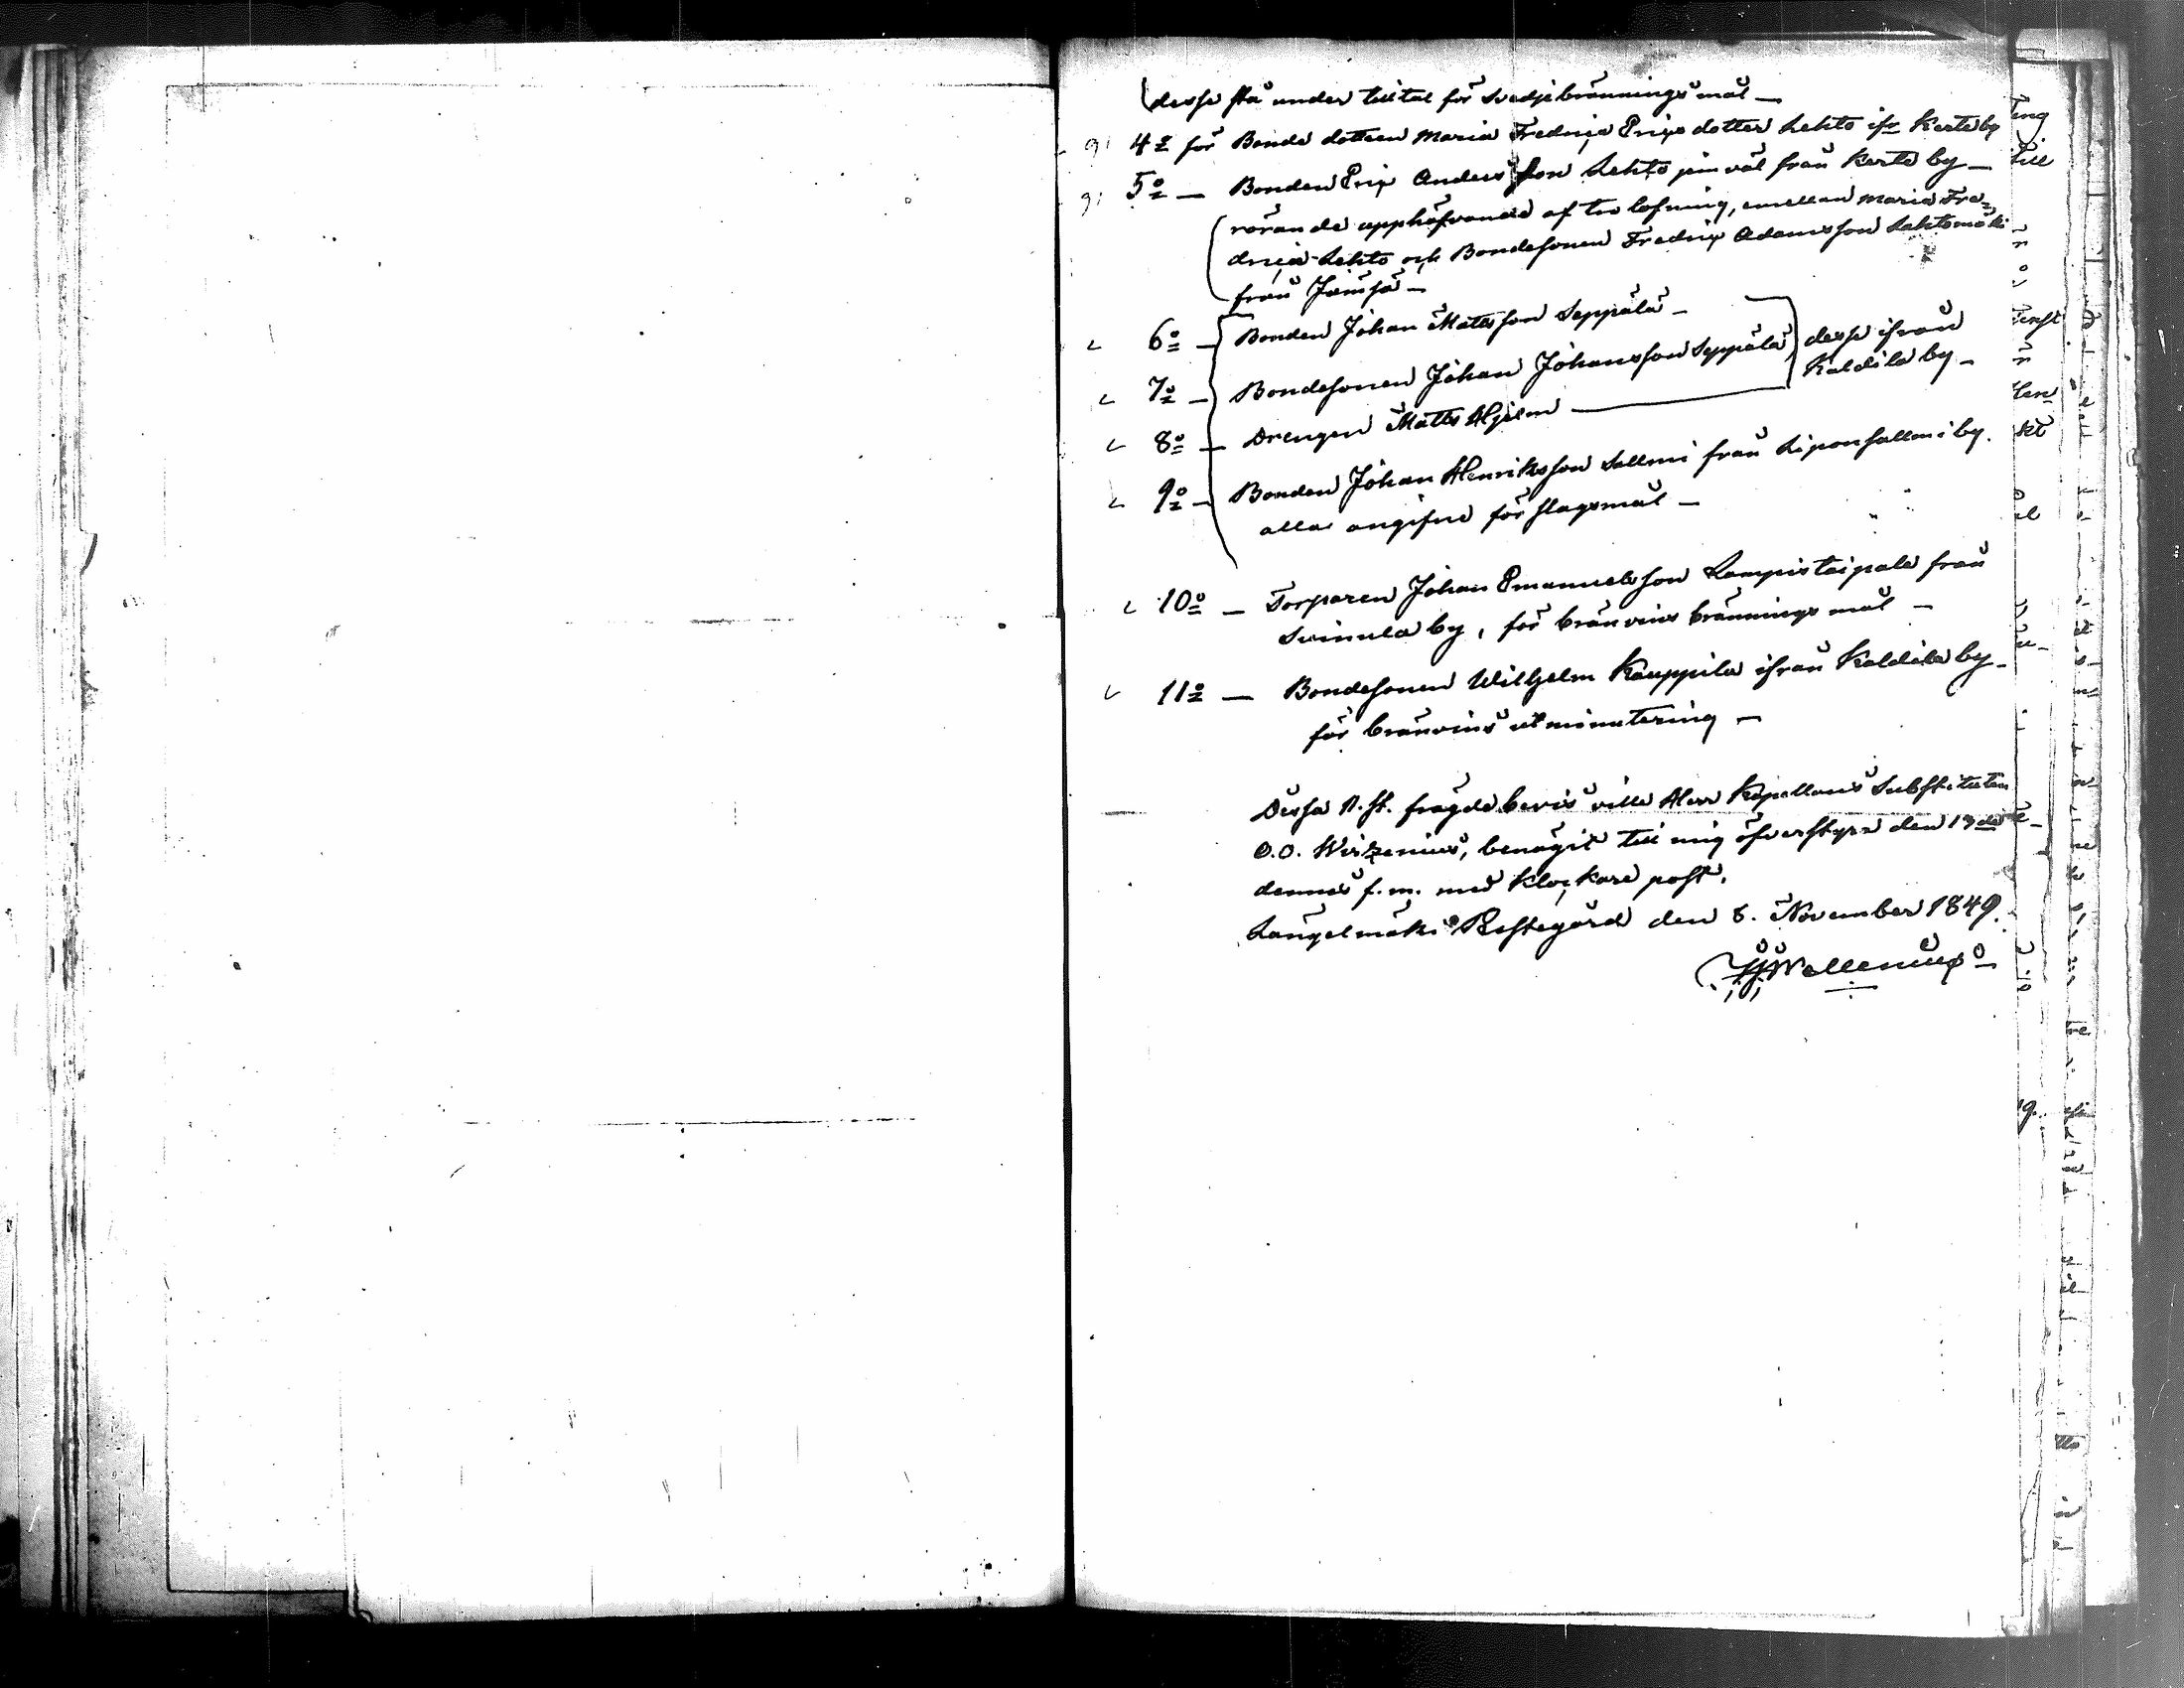 desse stå under tilltal för Svedjebrännings mål —
4º för Bonde dottern Maria Fredrica Erics dotter Lehto ifr. Kerte by
5º — Bonden Eric Andersson Lehto jemväl från Kerte by —
rörande upphäfvande af trolofning, emellan Maria Fre=
drica Lehto och Bondesonen Fredric Adamsson Lahtomäki
från Jämsä —
6º — Bonden Johan Mattsson Seppälä —
7º — Bondesonen Johan Johansson Seppälä
desse ifrån
Kaldila by —
8º — Drengen Matts Hjelm —
9º — Bonden Johan Henriksson Sallmi från Liponsallmi by.
alla angifne för slagsmål —
10º — Torparen Johan Emanuelsson Lampistaipale från
Svinula by, för bränvins brännings mål —
11º — Bondesonen Wilhelm Kauppila ifrån Kaldila by —
för bränvins utminutering —
Dessa 11. st. frägdebevis ville Herr Kapellans Substituten
O.O. Wirzenius, benägit till mig öfverstyra den 13de
dennes f.m. med Klockare post.
Längelmäki Prestegård den 8. November 1849.
Wallenius